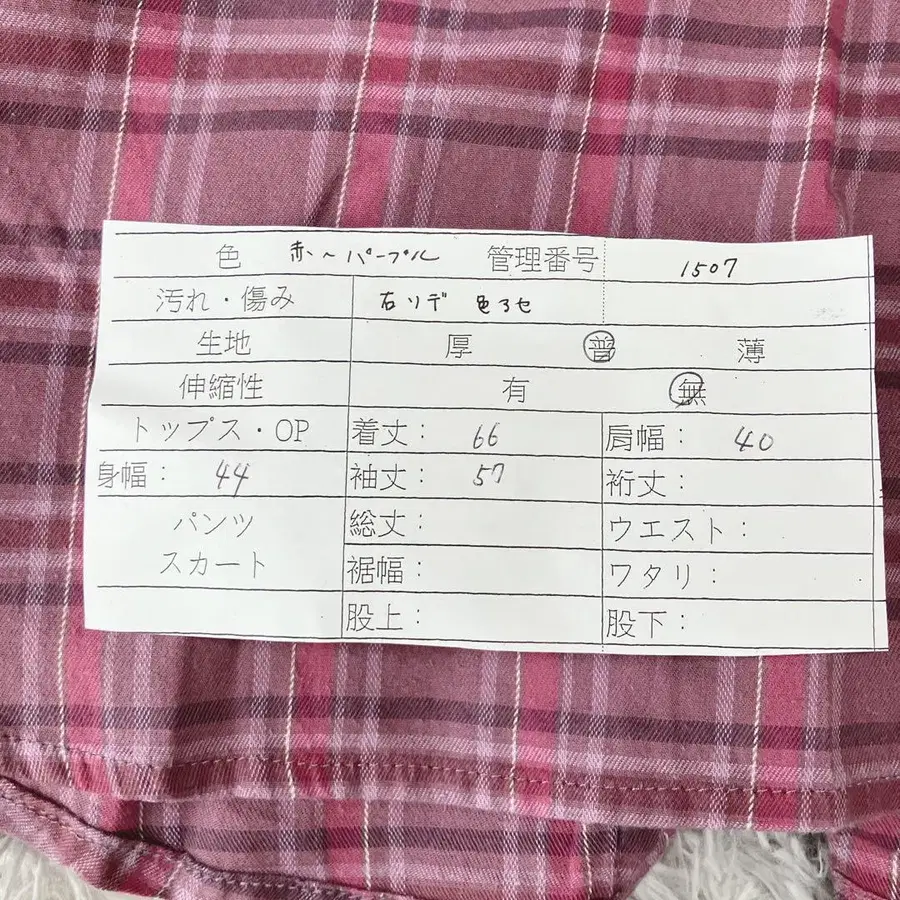 色 赤〜パープル 管理番号 1507
汚れ・傷み 右ソデ 色アセ
生地 厚 普 薄
伸縮性 有 無
トップス・OP 着丈: 66 肩幅: 40
身幅: 44 袖丈: 57 裄丈:
パンツ 総丈: ウエスト:
スカート 裾幅: ワタリ:
股上: 股下: